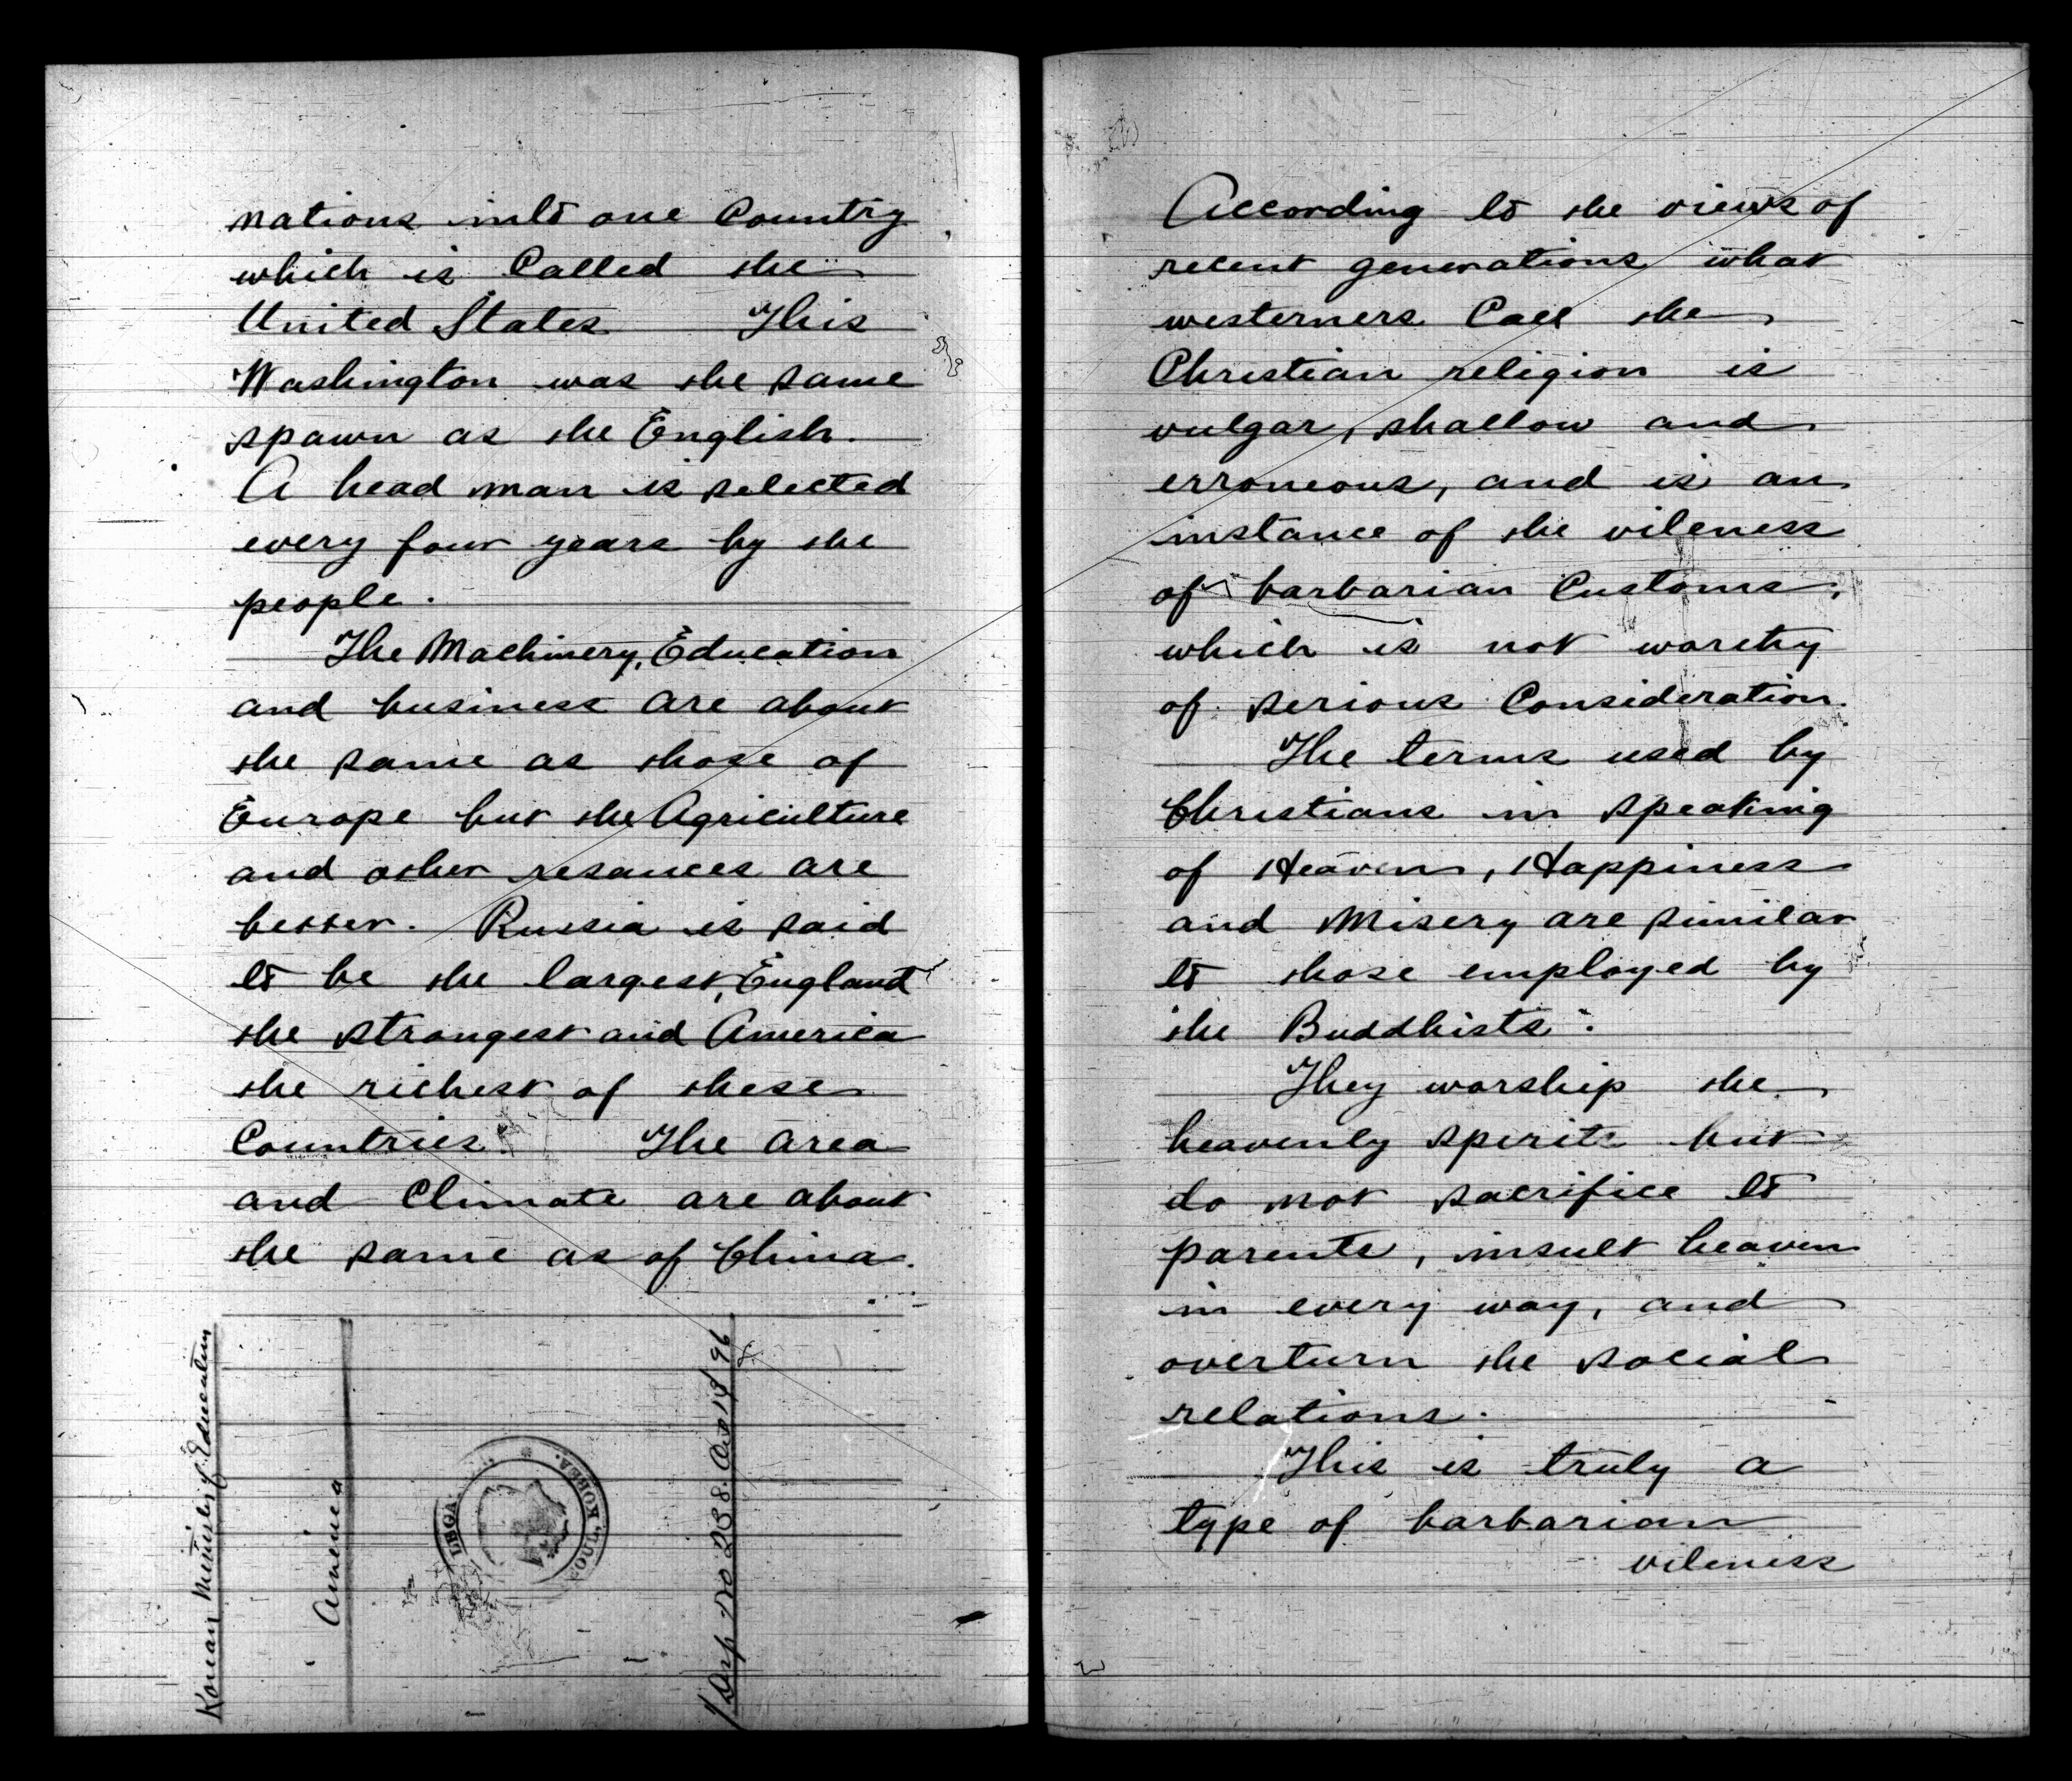 nations into one Country
which is Called the
United States This
Washington was the same
spawn as the English.
A head man is selected
every four years by the
people.
The Machinery, Education
and business are about
the same as those of
Europe but the Agriculture
and other resances are
better. Russia is said
to be the largest, England
the strongest and America
the richest of these
Countries. The area
and Climate are about
the same as of China.
Korean Minister of Education
America
LEGA
SOUL, KOREA.
Dsp No 238. 96
According to the views of
recent generations what
westerners Call the
Christian religion is
vulgar, shallow and
erroneous, and is an
instance of the vileness
of barbarian Customs,
which is not worthy
of serious Consideration.
The terms used by
Christians in speaking
of Heaven, Happiness
and Misery are similar
to those employed by
the Buddhists.
They worship the
heavenly spirits but
do not sacrifice to
parents, insult heaven
in every way, and
overturn the social
relations.
This is truly a
type of barbarian
vileness